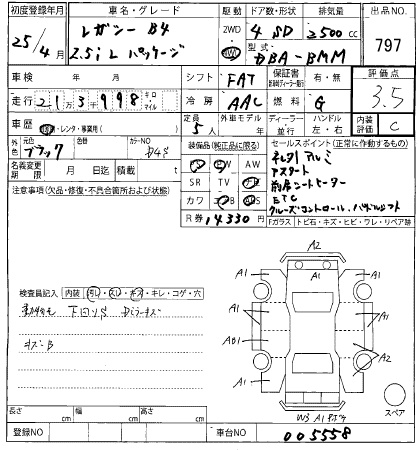 初度登録年月 車名・グレード 駆動 ドア数・形状 排気量 出品NO.
25/4月 レガシー B4 2WD 4WD 4 SD 2500 cc 797
2.5i L パッケージ 型式 DBA-BMM
車検 年 月 シフト FAT 保証書 有・無 評価点
走行 21,3 998 キロ・マイル 冷房 AAC 燃料 G 3.5
車歴 自家・レンタ・事業用( ) 定員 5人 外車モデル 年 ディーラー・並行 ハンドル 左・右 内装評価 C
外色 元色 ブラック 色替 カラーNO D4S 装備品(純正品に限る) セールスポイント(正常に動作するもの)
名義変更期限 月 日迄 積載 t PS PW AW
注意事項(欠品・修復・不具合箇所および状態) SR TV ナビ
カワ AB ABS ETC
R券 14330円 クルーズコントロール、パドルシフト
Fガラス トビ石・キズ・ヒビ・ワレ・リペア跡
検査員記入 内装 汚レ・スレ・キズ・キレ・コゲ・穴
下回りS Dミラーキズ
キズ・B
A2
A1 A1 A1
A1 A1
AB1 A2
A1 A1
W3 A1
スペア
長さ cm 幅 cm 高さ cm
登録NO 車台NO 005558